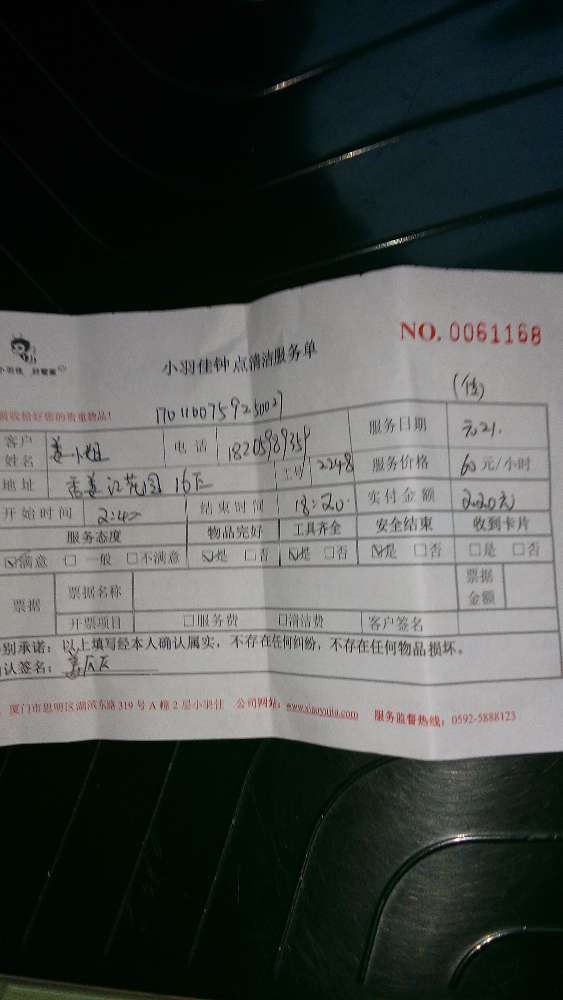 NO. 0061168
小羽佳 好管家
小羽佳钟点清洁服务单
请收拾好您的贵重物品!
客户姓名 姜小姐 电话 服务日期
工号 2248 服务价格 60 元/小时
地址 花园 16
开始时间 2:40 结束时间 18:20 实付金额 220元
服务态度 物品完好 工具齐全 安全结束 收到卡片
☑满意 □一般 □不满意 ☑是 □否 ☑是 □否 ☑是 □否 □是 □否
票据 票据名称 票据金额
开票项目 □服务费 □清洁费 客户签名
别承诺:以上填写经本人确认属实,不存在任何纠纷,不存在任何物品损坏。
认签名:
厦门市思明区湖滨东路 319 号 A 幢 2 层小羽佳 公司网站:www.xiaoyujia.com 服务监督热线:0592-5888123